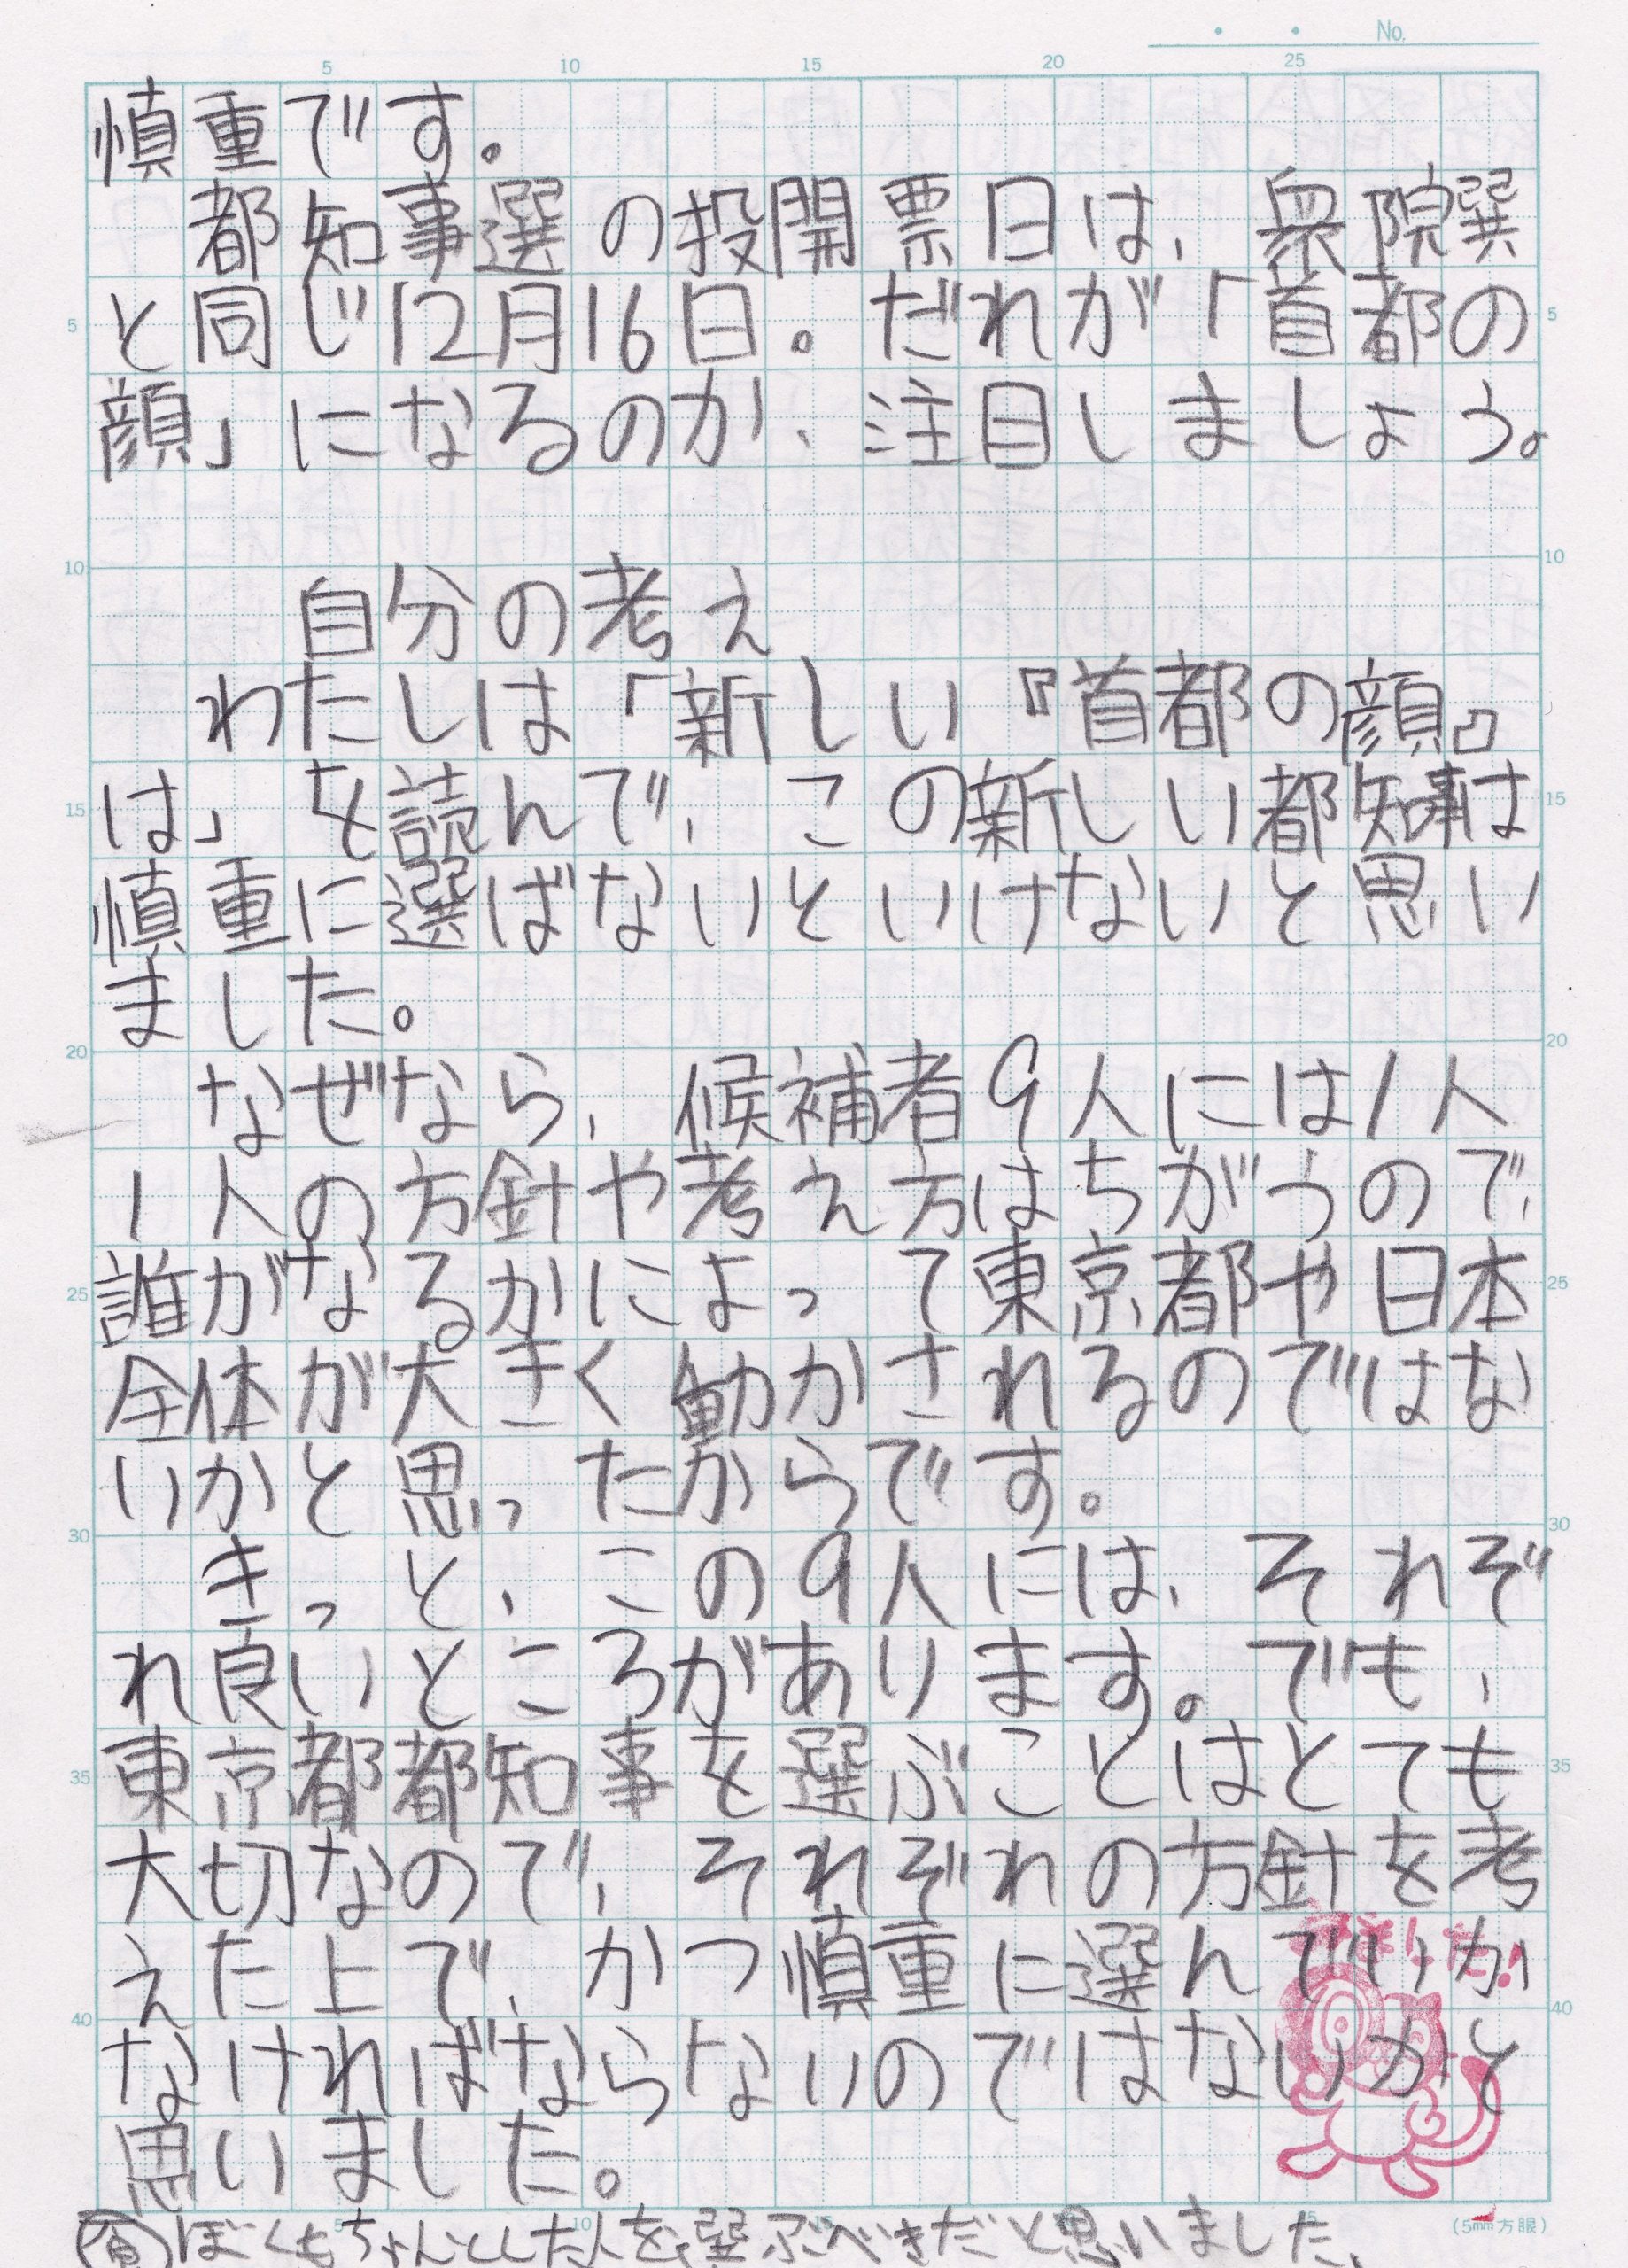 No.
5 10 15 20 25
慎重です。
都知事選の投開票日は、衆院選
5 と同じ12月16日。だれが「首都の 5
顔」になるのか、注目しましょう。
10 10
自分の考え
わたしは「新しい『首都の顔』
15 は」を読んで、この新しい都知事は 15
慎重に選ばないといけないと思い
ました。
20 20
なぜなら、候補者9人には1人
1人の方針や考え方はちがうので、
25 誰がなるかによって東京都や日本 25
全体が大きく動かされるのではな
いかと思ったからです。
30 30
きっと、この9人には、それぞ
れ良いところがあります。でも、
35 東京都都知事を選ぶことはとても 35
大切なので、それぞれの方針を考
えた上で、かつ慎重に選んでいか
40 40
なければならないのではないかと
思いました。
ぼくもちゃんとした人を選ぶべきだと思いました、
(5mm方眼)